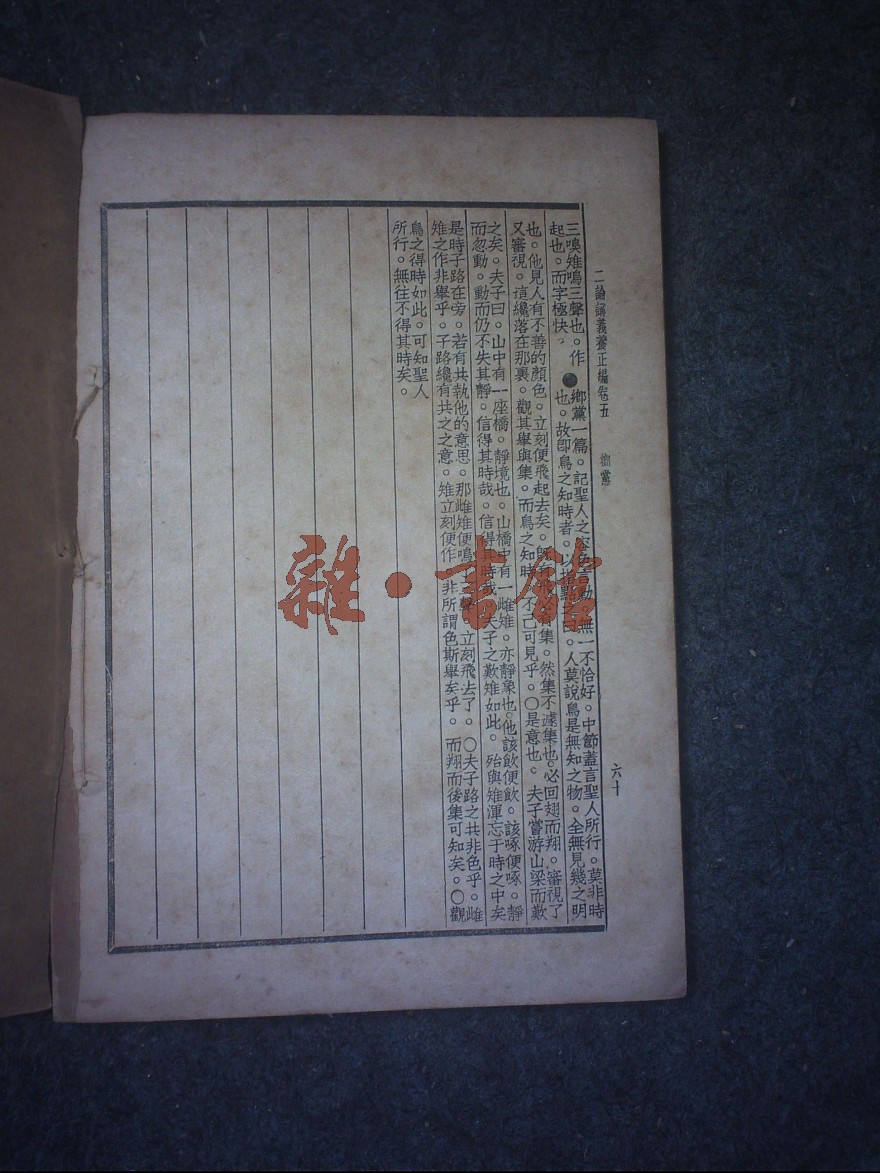 二論講義養正編卷五 鄉黨 六十
三嗅雉鳴三聲也。作
起也。而字極快。
●鄉黨一篇。記聖人之容色言動。無一不恰好。中節蓋言聖人所行。莫非時
也。故即鳥之知時者。以 人莫說鳥是無知之物。全無見幾之明
也。他見人有不善的顏色。立刻便飛起去矣。既 集。然集不遽集也。必回翅而翔。審視了
又審視。這纔落在那裏。觀其舉與集。而鳥之知時。不已可見乎。〇是意也。夫子嘗游山梁而歎
之矣。夫子曰。山中有一座橋。靜境也。山橋中有一雌雉。亦靜象也。他該飲便飲。該啄便啄。靜
而忽動。動而仍不失其靜。信得其時哉。信得其時哉。夫子之歎雉如此。殆與雉渾忘于時之中矣
是時子路在旁。若有共執他的意思。那雌雉便鳴了三聲。立刻飛去了。〇夫子路之共非色乎。雌
雉之作非舉乎。子路纔有共之之意。雉立刻便作。非所謂色斯舉矣乎。而翔而後集可知矣。〇觀
鳥之得時如此。可知聖人
所行。無往不得其時矣。
雜·書館